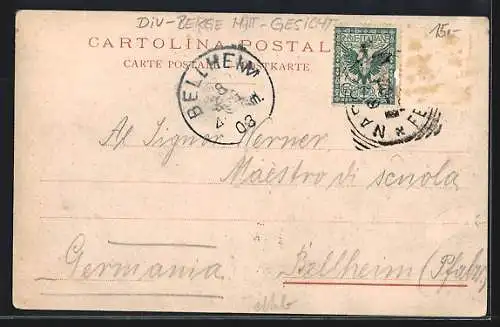 DIV-BERGE MIT-GESICHT
15.-
CARTOLINA POSTALE
CARTE POSTALE POSTKARTE
BELLHEIM
8
4
03
Al Signor Kerner,
Maestro di scuola
Germania
Bellheim (Pfalz)